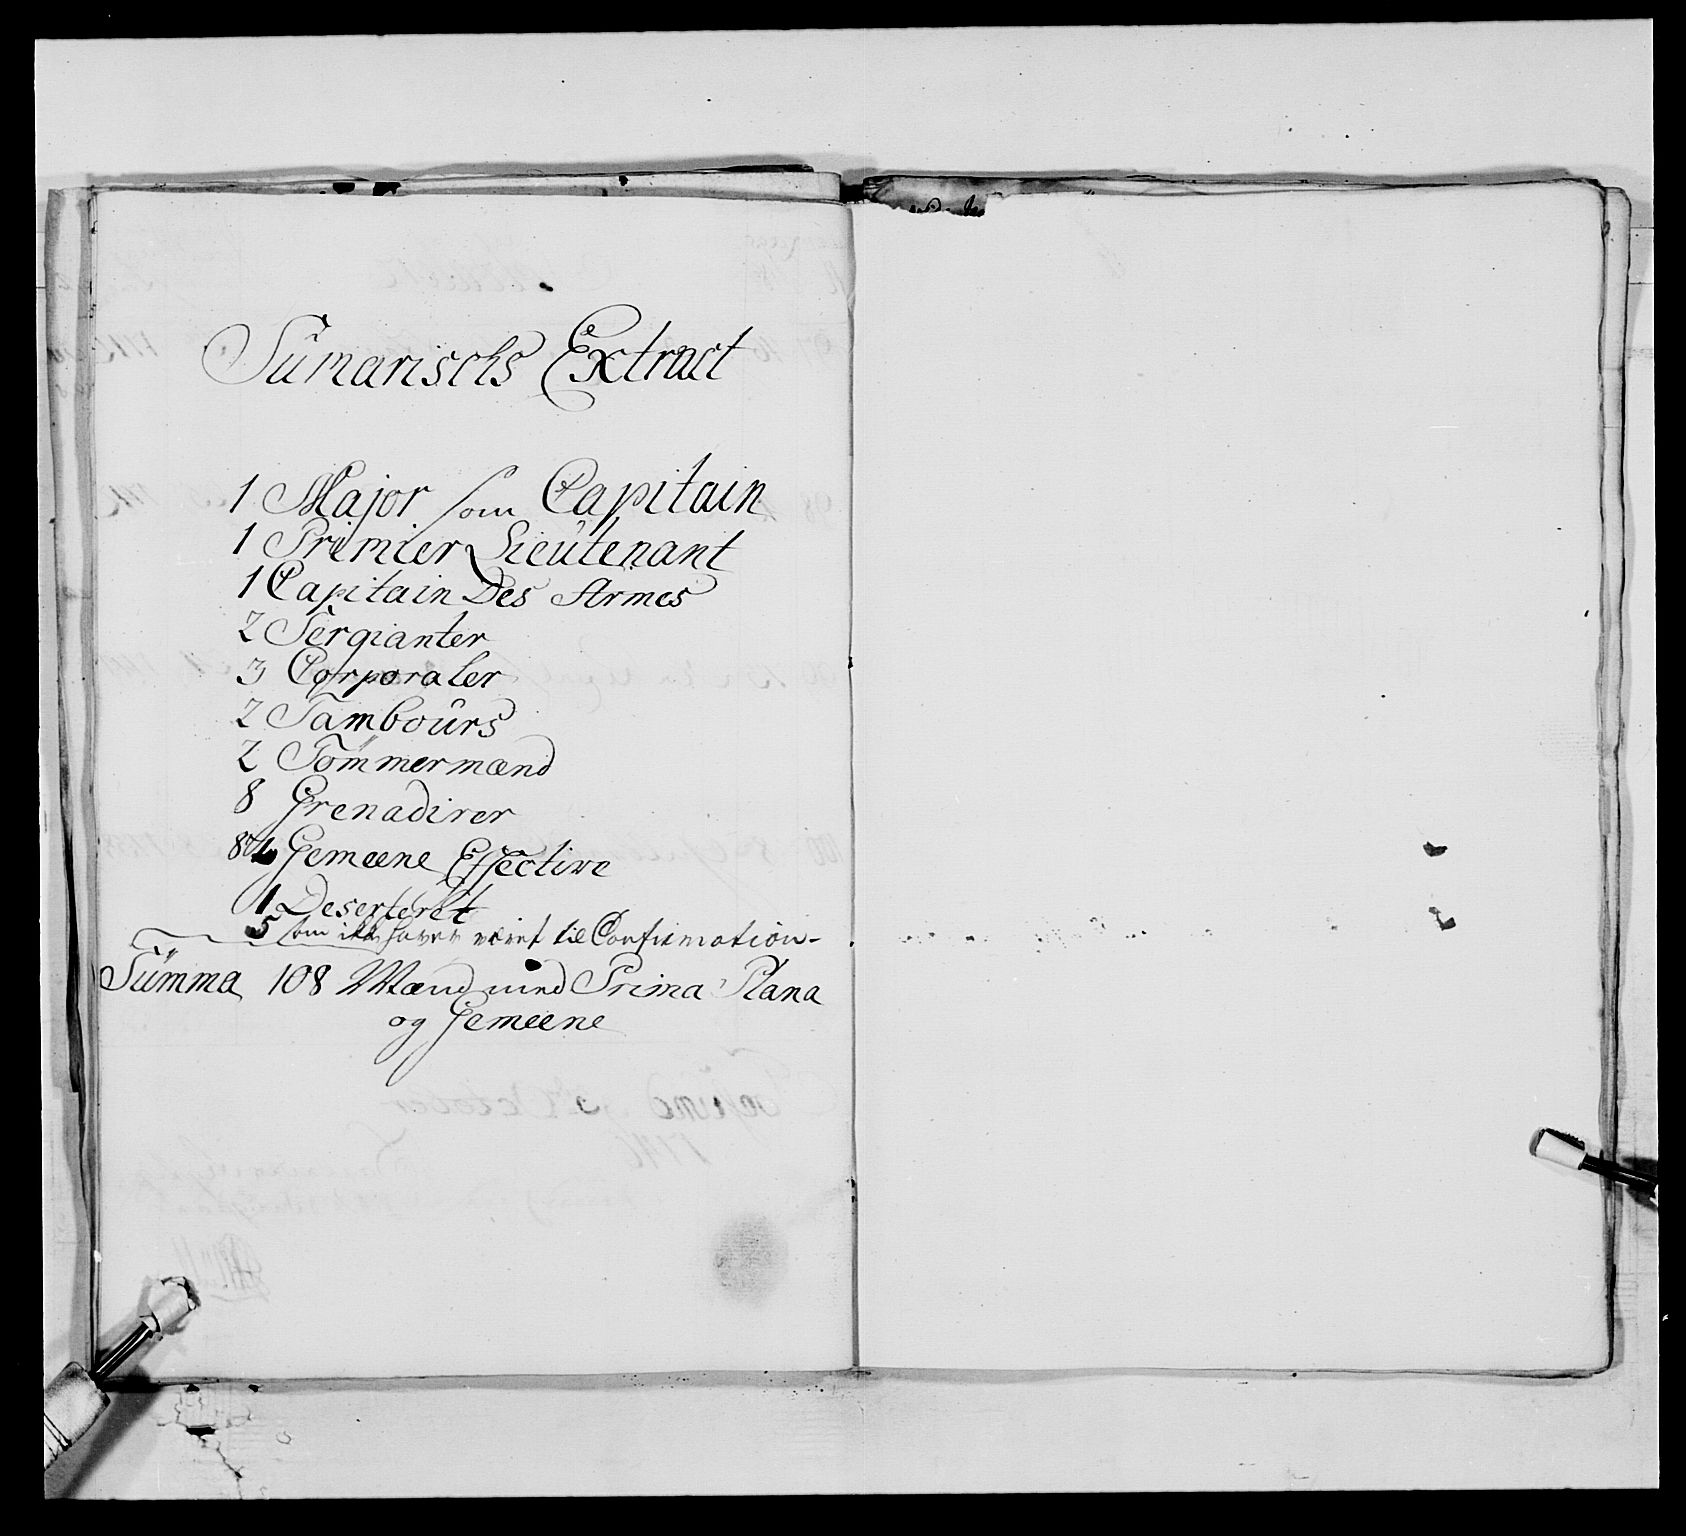 Sumarischs Extract
1 Major som Capitain
1 Primier Lieutenant
1 Capitain Des Armes
2 Sergianter
3 Corporaler
2 Tambours
2 Tømmermænd
8 Grenadirer
Gemeene Effective
1 Deserteret
5 som ikke haver været til Confirmation-
Summa 108 Mænd med Prima Plana
og Gemeene